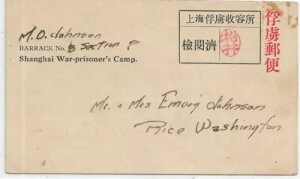 M.O. Johnson
BARRACK No. 5 Section 8
Shanghai War-prisoner's Camp.
上海俘虜收容所
檢閱濟
俘虜郵便
Mr. & Mrs Emory Johnson
Rice Washington